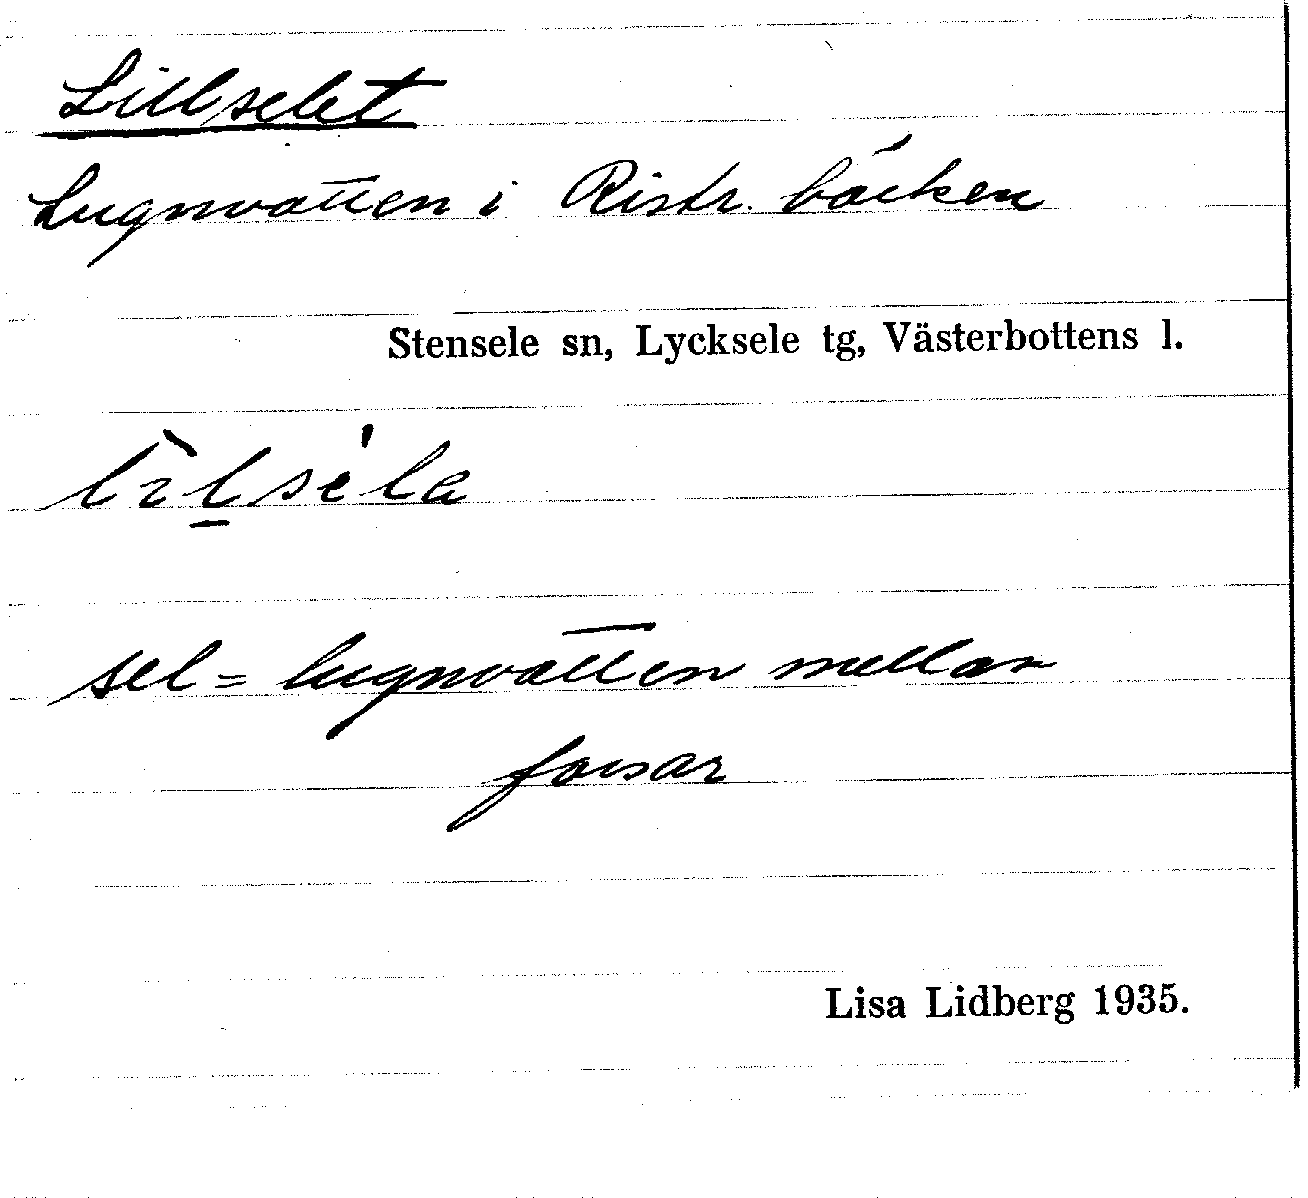 Lillselet
Lugnvatten i Ristr. bäcken
Stensele sn, Lycksele tg, Västerbottens l.
lìl̠sé'la
sel = lugnvatten mellan
forsar
Lisa Lidberg 1935.